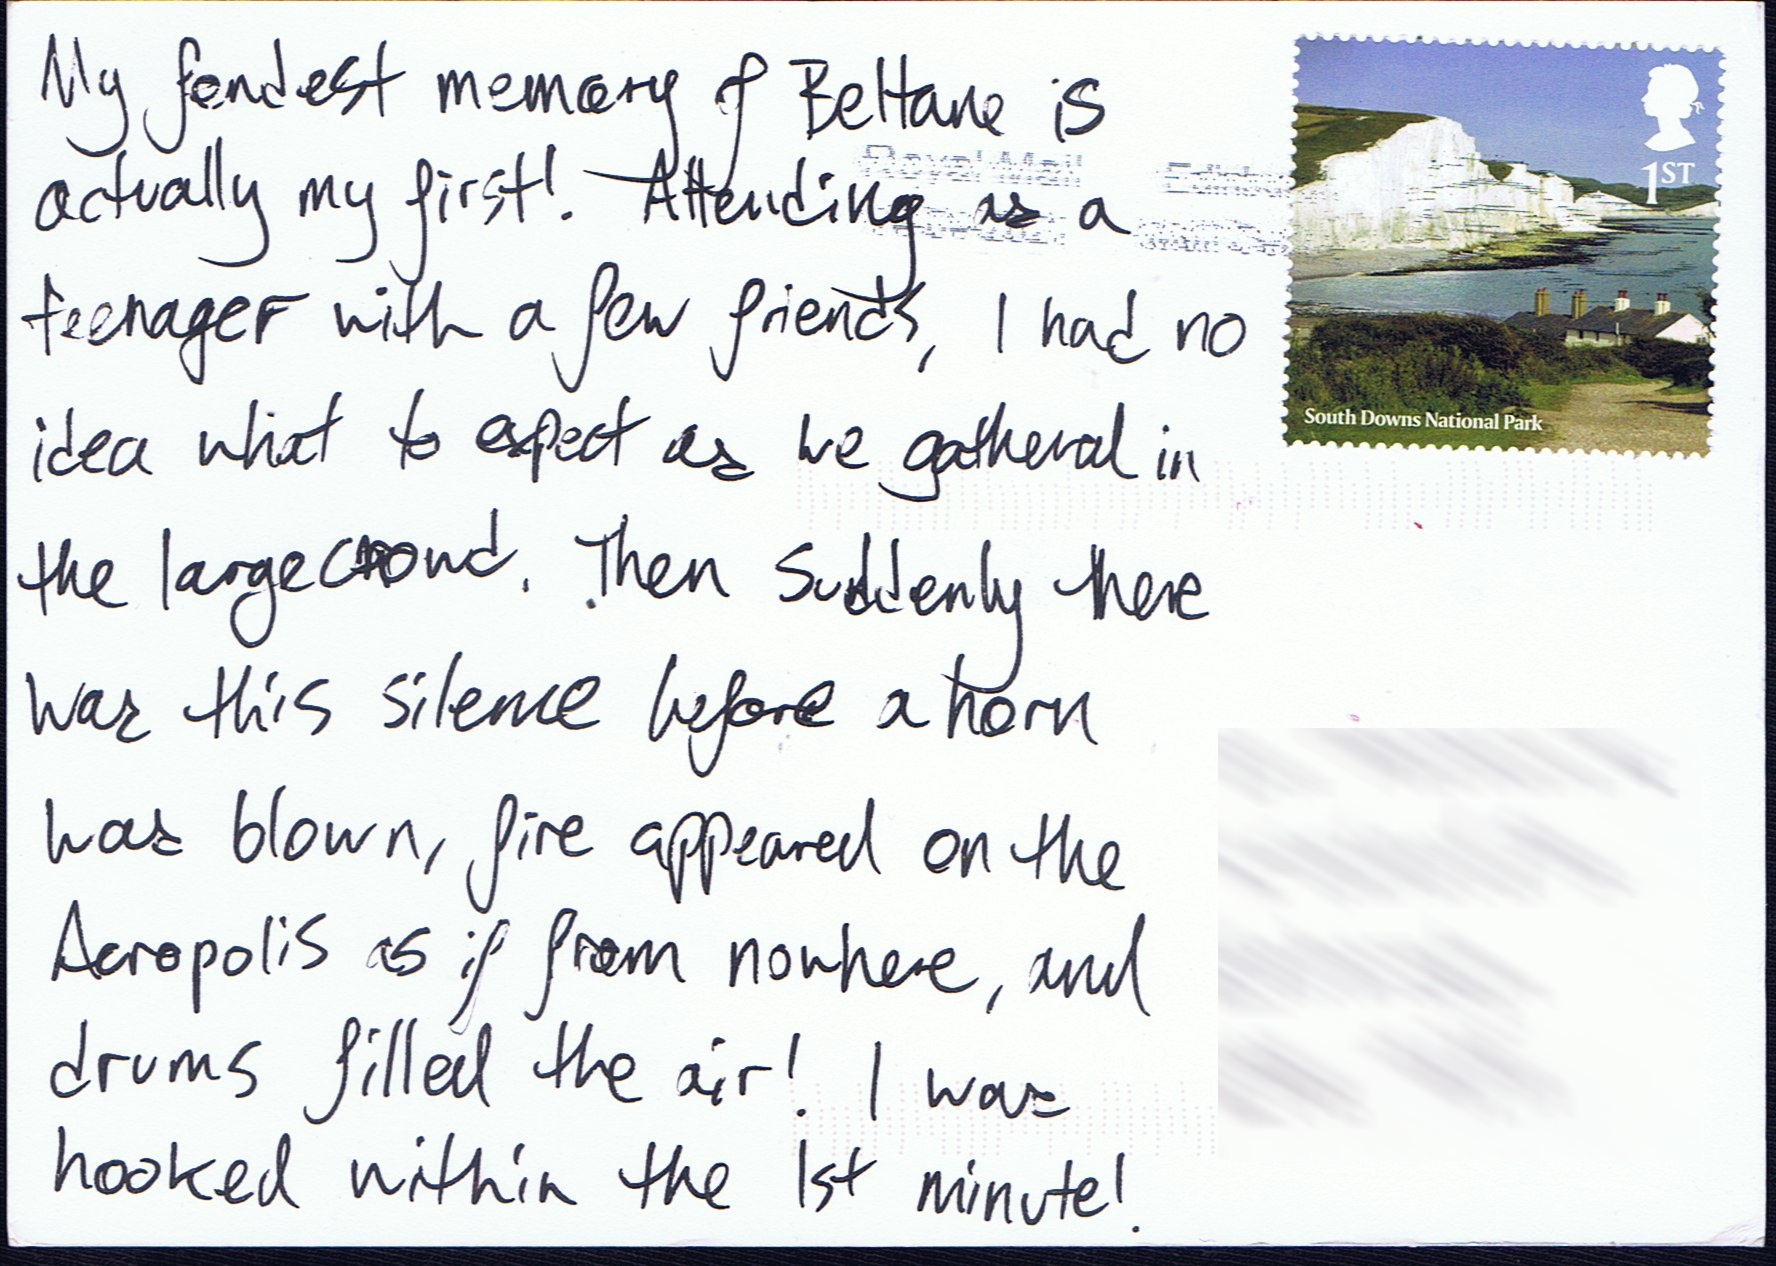 My fondest memory of Beltane is
actually my first! Attending as a
teenager with a few friends, I had no
idea what to expect as we gathered in
the large crowd. Then suddenly there
was this silence before a horn
was blown, fire appeared on the
Acropolis as if from nowhere, and
drums filled the air! I was
hooked within the 1st minute!
Royal Mail
1ST
South Downs National Park